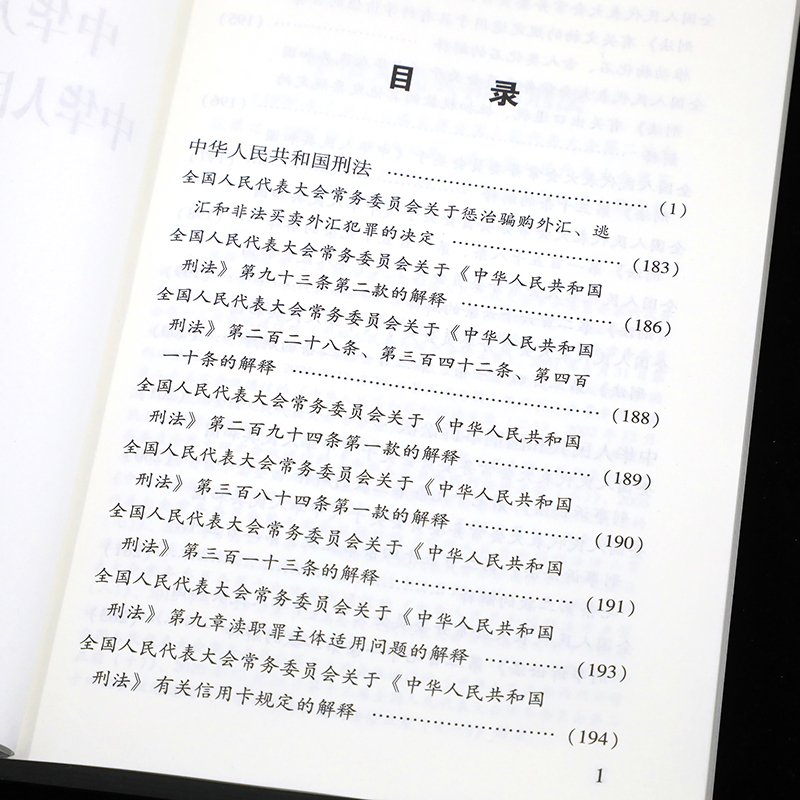 目 录
中华人民共和国刑法 …………………………………… (1)
全国人民代表大会常务委员会关于惩治骗购外汇、逃
汇和非法买卖外汇犯罪的决定 ………………………… (183)
全国人民代表大会常务委员会关于《中华人民共和国
刑法》第九十三条第二款的解释 ……………………… (186)
全国人民代表大会常务委员会关于《中华人民共和国
刑法》第二百二十八条、第三百四十二条、第四百
一十条的解释 …………………………………………… (188)
全国人民代表大会常务委员会关于《中华人民共和国
刑法》第二百九十四条第一款的解释 ………………… (189)
全国人民代表大会常务委员会关于《中华人民共和国
刑法》第三百八十四条第一款的解释 ………………… (190)
全国人民代表大会常务委员会关于《中华人民共和国
刑法》第三百一十三条的解释 ………………………… (191)
全国人民代表大会常务委员会关于《中华人民共和国
刑法》第九章渎职罪主体适用问题的解释 …………… (193)
全国人民代表大会常务委员会关于《中华人民共和国
刑法》有关信用卡规定的解释 ………………………… (194)
1